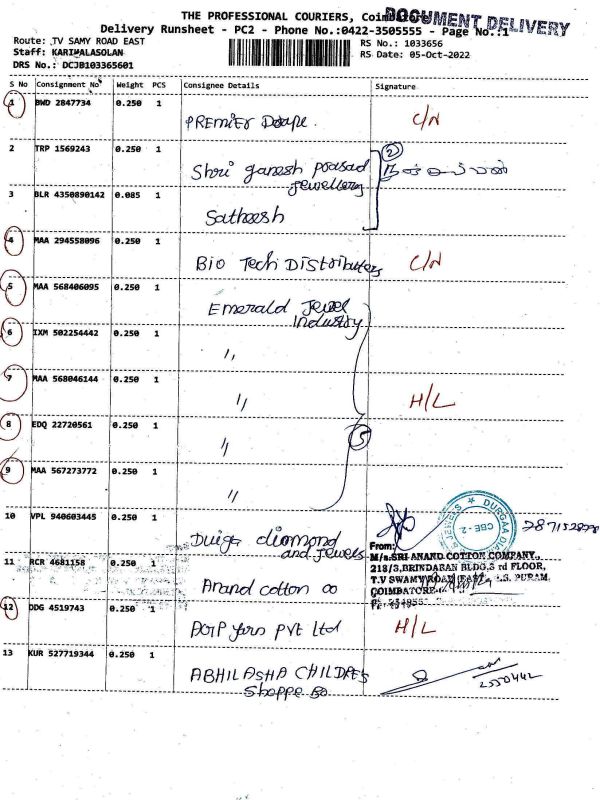 THE PROFESSIONAL COURIERS, Coimbatore
DOCUMENT DELIVERY
Delivery Runsheet - PC2 - Phone No.:0422-3505555 - Page No.:1
Route: TV SAMY ROAD EAST
RS No.: 1033656
Staff: KARIMALASOLAN
RS Date: 05-Oct-2022
DRS No.: DCJB103365601
S No Consignment No Weight PCS Consignee Details Signature
1 BWD 2847734 0.250 1 PREMier Drape. C/N
2 TRP 1569243 0.250 1 Shri ganesh prasad jewellery 2
3 BLR 4350890142 0.085 1 Satheesh
4 MAA 294558096 0.250 1 Bio Tech Distributers C/N
5 MAA 568406095 0.250 1 Emerald Jewel Industry
6 IXM 502254442 0.250 1 "
7 MAA 568046144 0.250 1 " H/L
8 EDQ 22720561 0.250 1 " 5
9 MAA 567273772 0.250 1 "
10 VPL 940603445 0.250 1 Durga diamond and jewels
DURGAA
CBE - 2
From:
M/s.SRI ANAND COTTON COMPANY,
218/3,BRINDABAN BLDG,3 rd FLOOR,
T.V SWAMY ROAD (EAST), R.S. PURAM,
COIMBATORE
11 RCR 4681158 0.250 1 Anand cotton co
12 DDG 4519743 0.250 1 Yarn Pvt Ltd H/L
13 KUR 527719344 0.250 1 ABHILASHA CHILDRES Shoppe